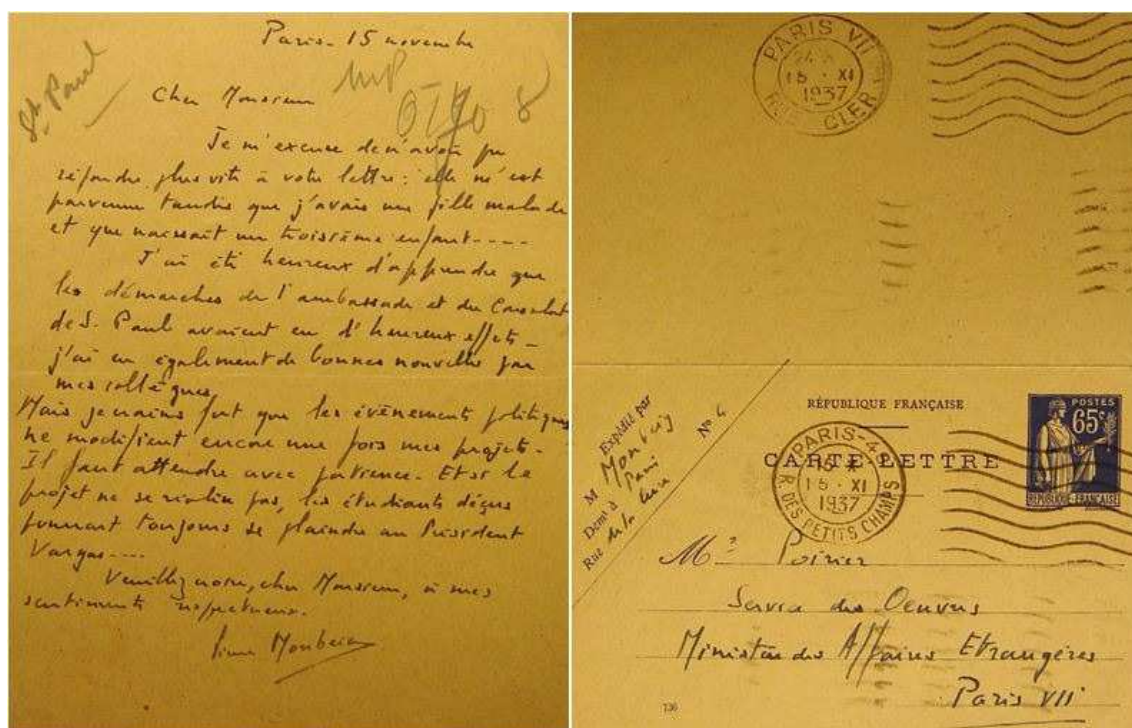 Paris - 15 novembre
St Paul
Cher Monsieur
Je m'excuse de n'avoir pu
répondre plus vite à votre lettre : elle m'est
parvenue tandis que j'avais une fille malade
et que naissait un troisième enfant ----
J'ai été heureux d'apprendre que
les démarches de l'ambassade et du Consulat
de S. Paul avaient eu d'heureux effets -
j'ai eu également de bonnes nouvelles par
mes collègues.
Mais je crains fort que les évènements politiques
ne modifient encore une fois mes projets -
Il faut attendre avec patience. Et si le
projet ne se réalise pas, les étudiants déçus
pourront toujours se plaindre au Président
Vargas ----
Veuillez croire, cher Monsieur, à mes
sentiments respectueux.
Pierre Monbeig
PARIS VII
15 · XI
1937
RUE CLER
RÉPUBLIQUE FRANÇAISE
CARTE-LETTRE
POSTES
65c
RÉPUBLIQUE - FRANÇAISE
PARIS-48
15 · XI
1937
R. DES PETITS CHAMPS
Expédié par
M Monbeig
Demt à Paris
Rue de la No 4
Mr Poirier
Service des Oeuvres
Ministère des Affaires Etrangères
Paris VII
736